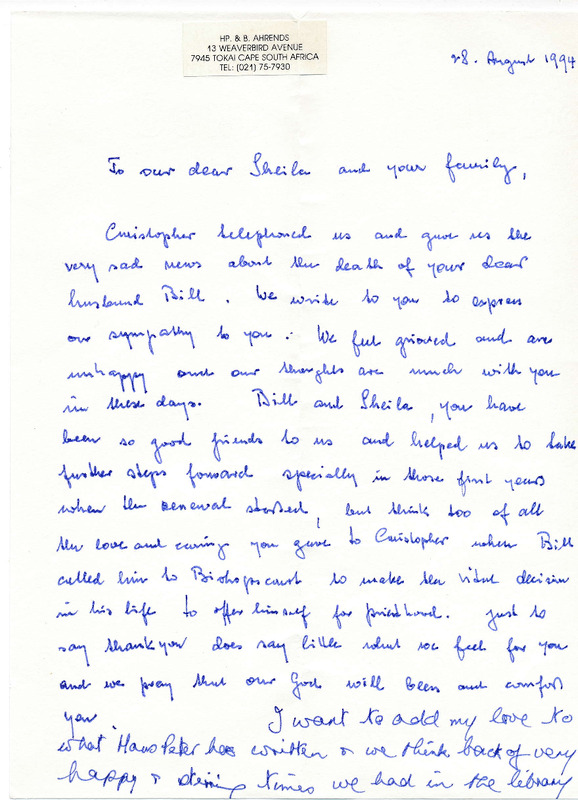 HP. & B. AHRENDS
13 WEAVERBIRD AVENUE
7945 TOKAI CAPE SOUTH AFRICA
TEL: (021) 75-7930
28. August 1994
To our dear Sheila and your family,
Christopher telephoned us and gave us the
very sad news about the death of your dear
husband Bill. We write to you to express
our sympathy to you. We feel grieved and are
unhappy and our thoughts are much with you
in these days. Bill and Sheila, you have
been so good friends to us and helped us to take
further steps forward specially in those first years
when the renewal started, but think too of all
the love and caring you gave to Christopher when Bill
called him to Bishopscourt to make the vital decision
in his life to offer himself for priesthood. Just to
say thank you does say little what we feel for you
and we pray that our God will bless and comfort
you. I want to add my love to
what Hans Peter has written & we think back of very
happy & times we had in the library